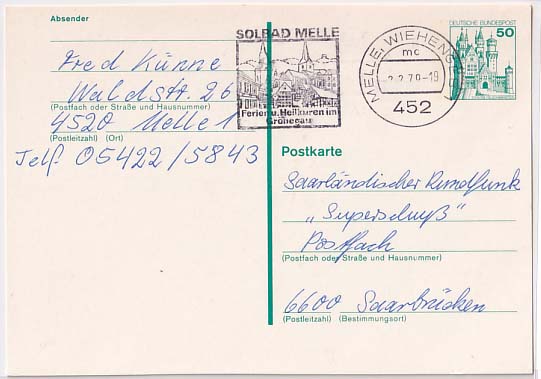 Absender
Fred Künne
Waldstr. 26
(Postfach oder Straße und Hausnummer)
4520 Melle 1
(Postleitzahl) (Ort)
Telf. 05422/5843
SOLBAD MELLE
Ferien u. Heilkuren im
Grönegau
MELLE, WIEHENGEB 1
mc
2.2.79-19
452
DEUTSCHE BUNDESPOST
50
Postkarte
Saarländischer Rundfunk
„Superschuß"
Postfach
(Postfach oder Straße und Hausnummer)
6600 Saarbrücken
(Postleitzahl) (Bestimmungsort)